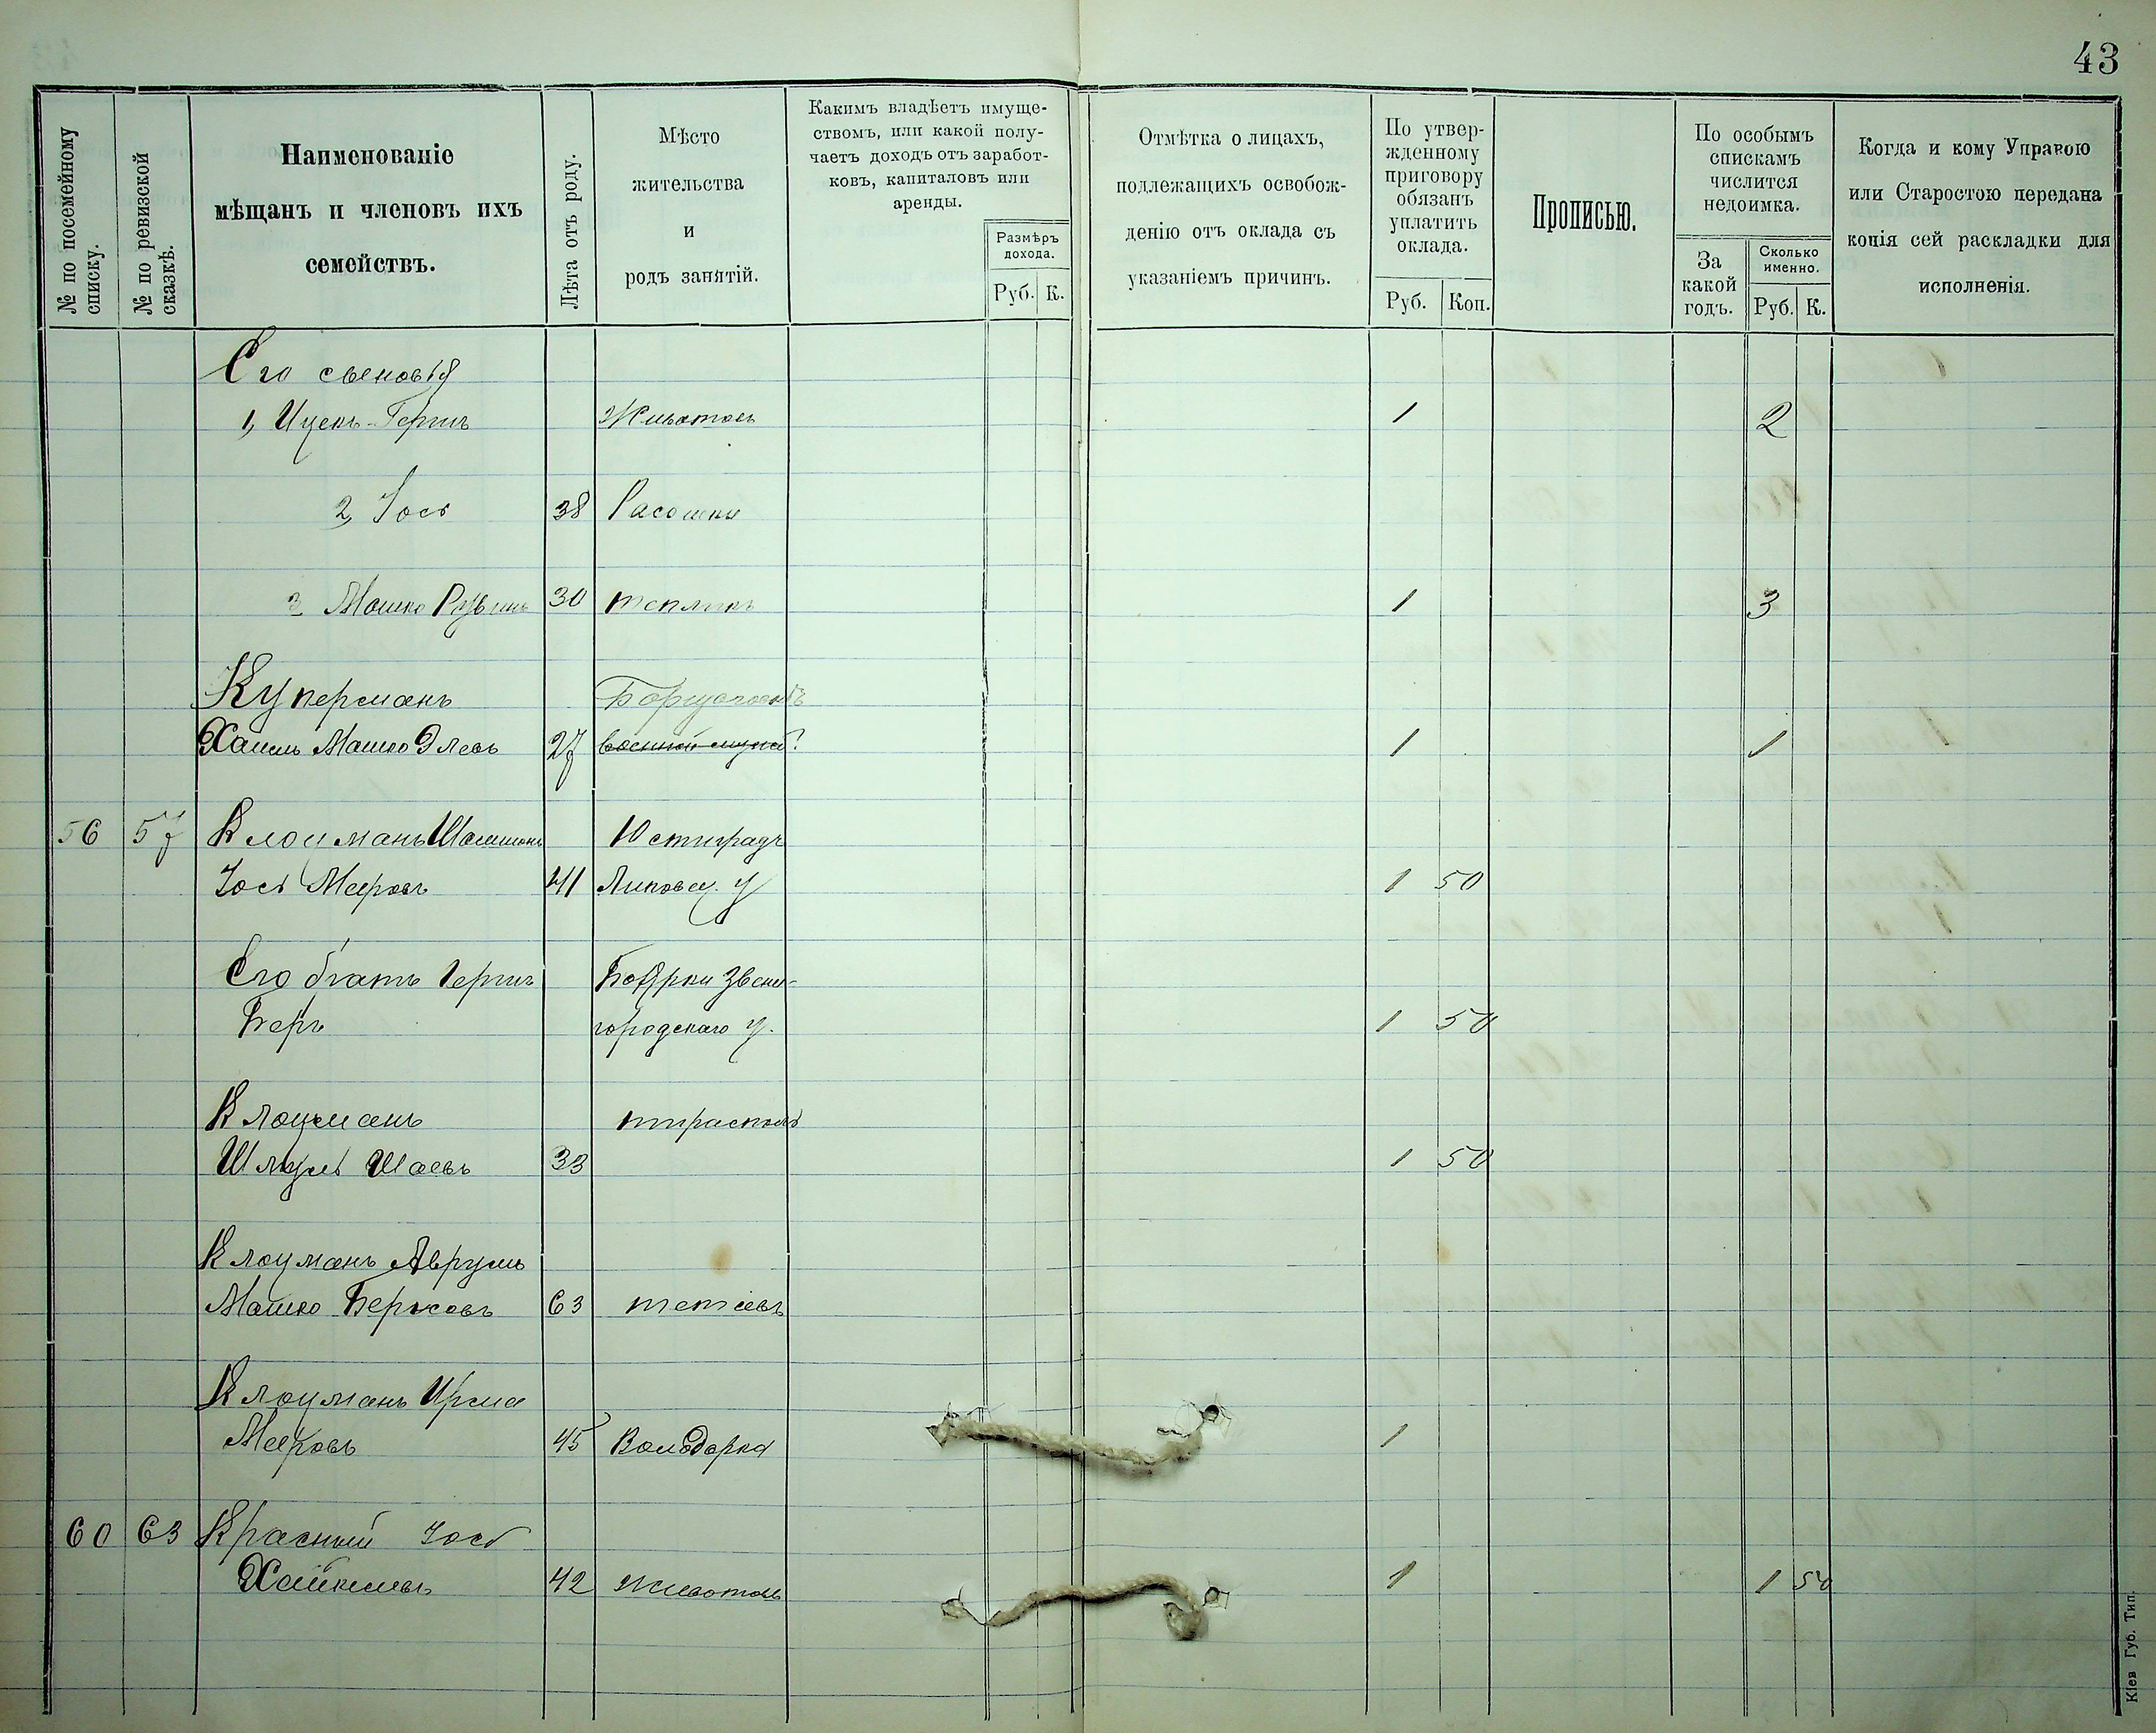 43
№ по посемейному списку.
№ по ревизской сказкѣ.
Наименованіе
мѣщанъ и членовъ ихъ
семействъ.
Лѣта отъ роду.
Мѣсто
жительства
и
родъ занятій.
Какимъ владѣетъ имуще-
ствомъ, или какой полу-
чаетъ доходъ отъ заработ-
ковъ, капиталовъ или
аренды.
Размѣръ
дохода.
Руб. К.
Отмѣтка о лицахъ,
подлежащихъ освобож-
денію отъ оклада съ
указаніемъ причинъ.
По утвер-
жденному
приговору
обязанъ
уплатить
оклада.
Руб. Коп.
Прописью.
По особымъ
спискамъ
числится
недоимка.
За
какой
годъ.
Сколько
именно.
Руб. К.
Когда и кому Управою
или Старостою передана
копія сей раскладки для
исполненія.
Его сыновья
1, Ицекъ-Гершъ Животовъ 1 2
2, Іось 38 Расошки
3 Мошко Рувинъ 30 тепликъ 1 3
Куперманъ
Хаимъ Мошко Элевъ 27 1 1
56 57 Клоцманъ Юстиградъ
Іось Мееровъ 41 Липовец. у 1 50
Его братъ Гершъ Боярки Звени-
Беръ городскаго у. 1 50
Клоцманъ тирасполь
Шмуль Шаевъ 33 1 50
Клоцманъ Аврумъ
Мошко Берковъ 63 тетіевъ
Клоцманъ Ирма
Мееровъ 45 Володарка 1
60 63 Красный Іось
Хайкелевъ 42 животовъ 1 1 50
Кіев Губ. Тип.